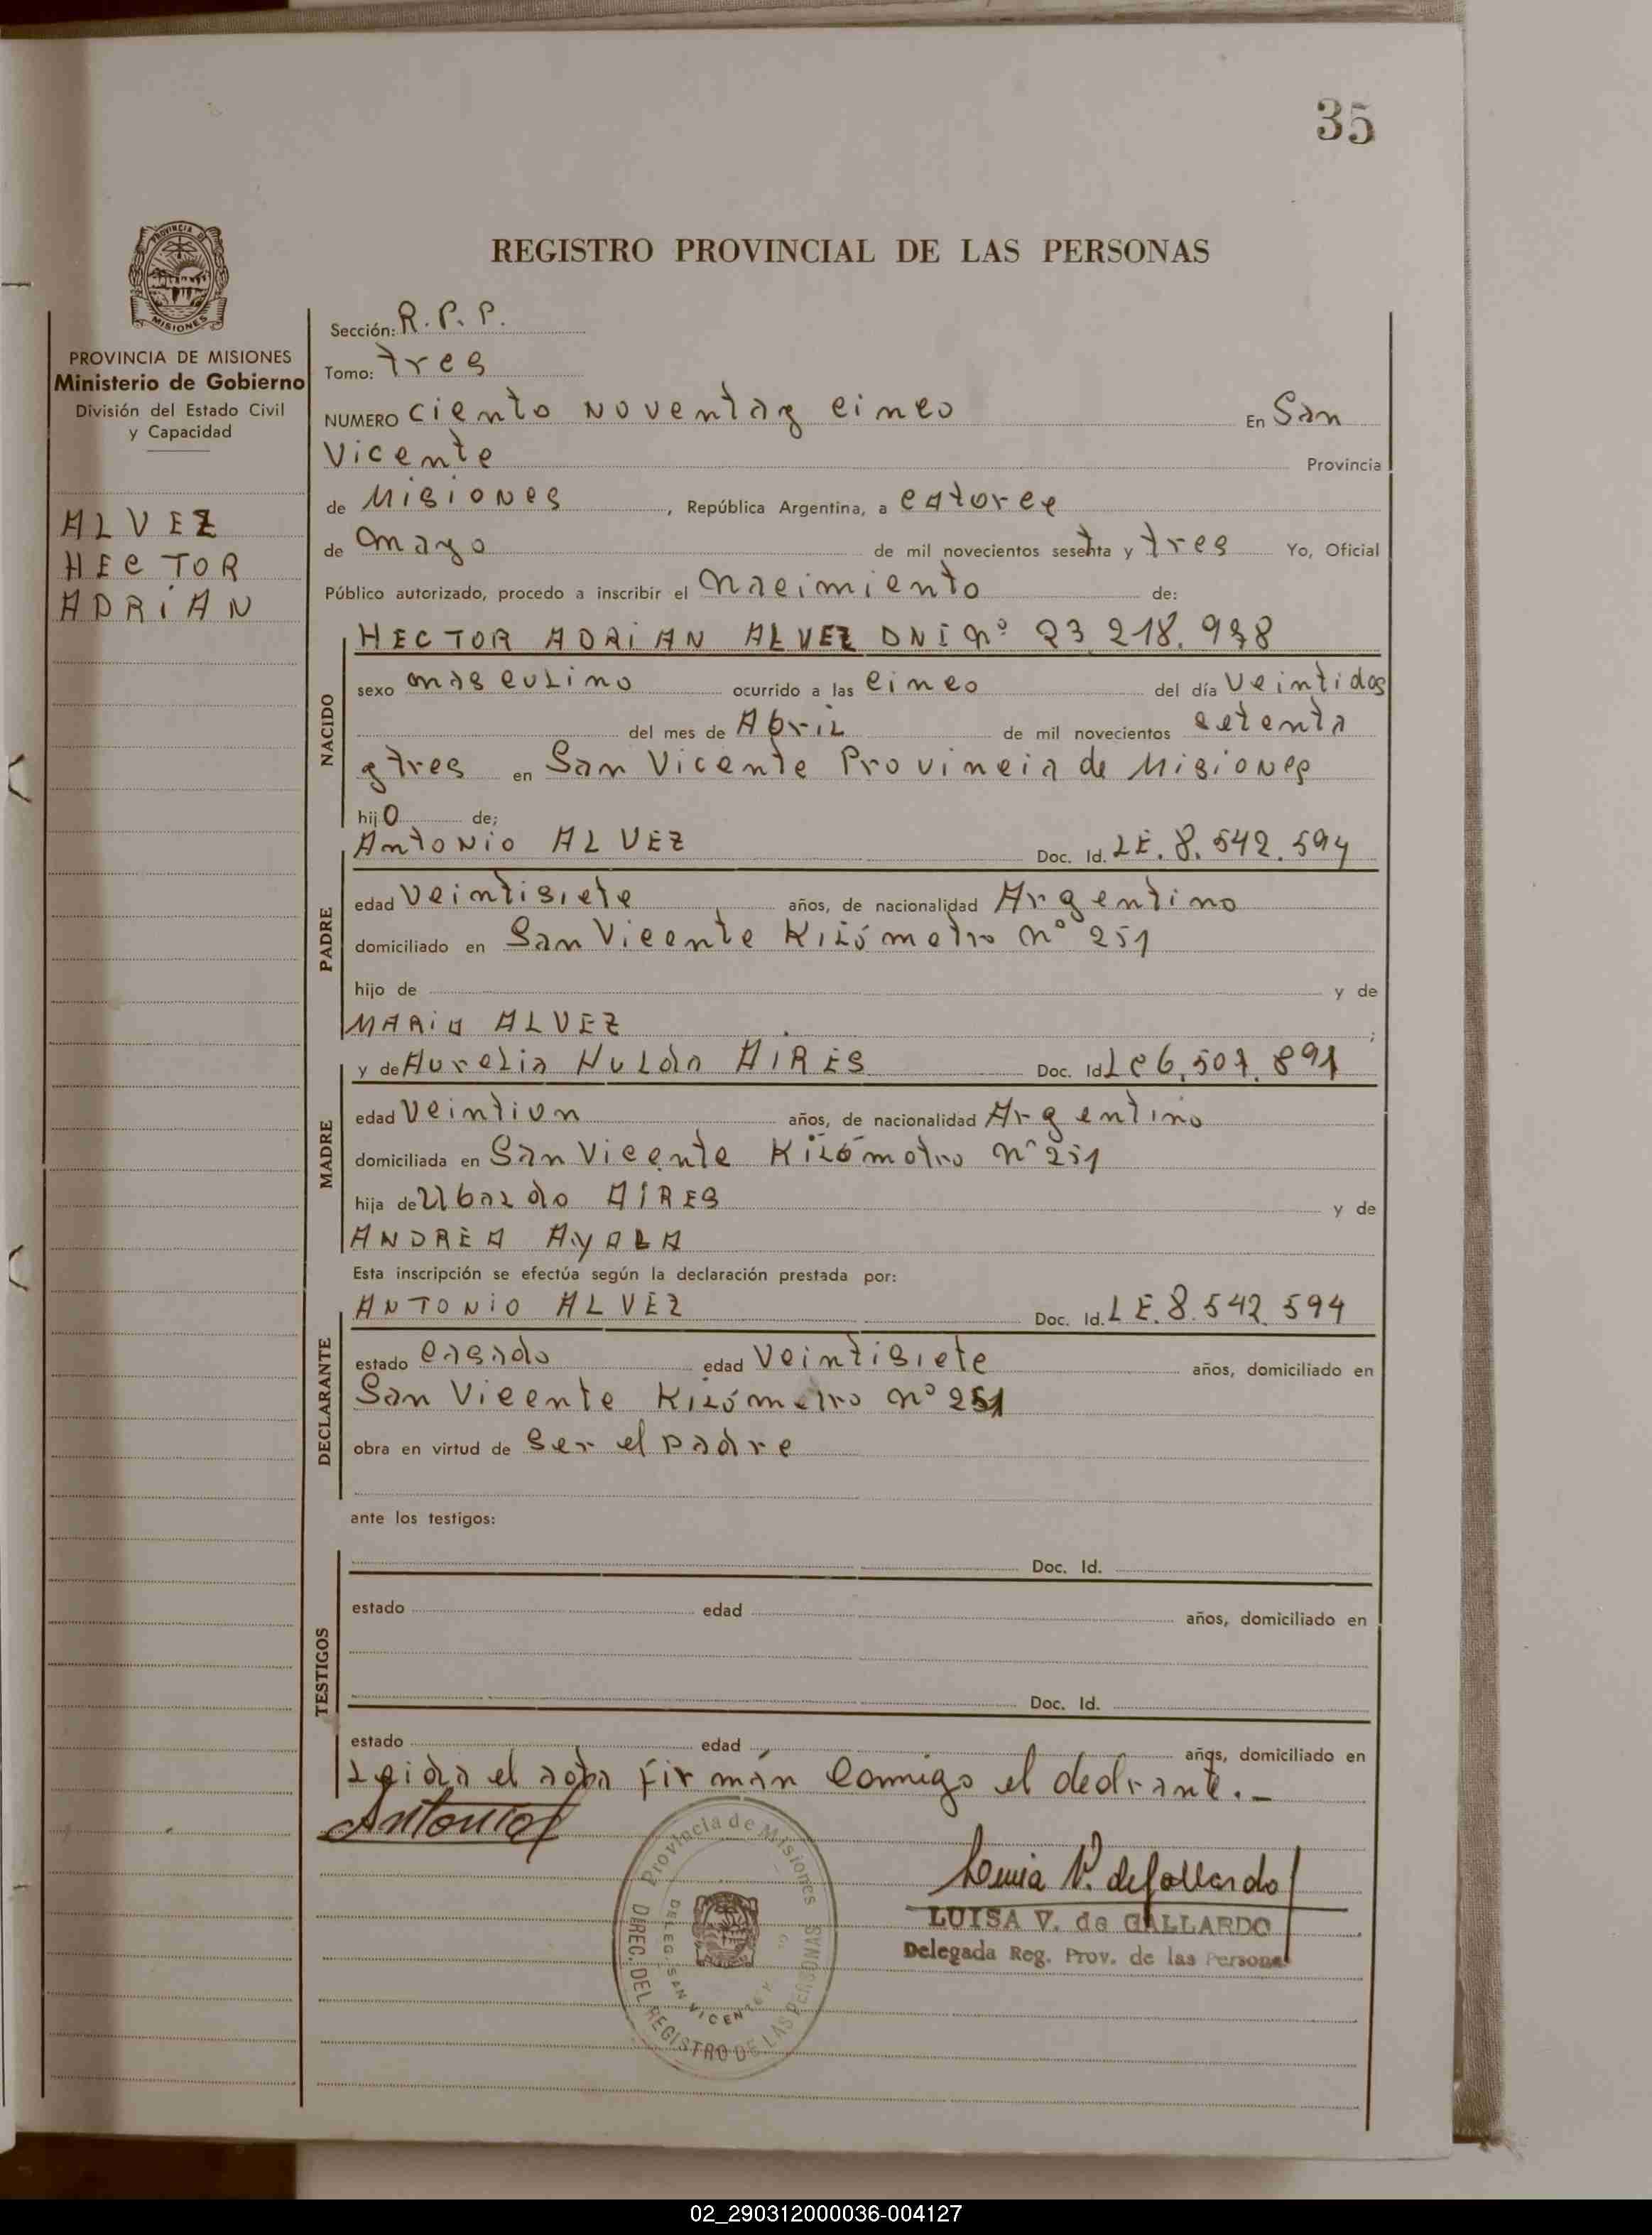 35
REGISTRO PROVINCIAL DE LAS PERSONAS
PROVINCIA DE MISIONES
PROVINCIA DE MISIONES
Ministerio de Gobierno
División del Estado Civil
y Capacidad
ALVEZ
HECTOR
ADRIAN
Sección: R.P.P.
Tomo: tres
NUMERO ciento noventa y cinco En San
Vicente Provincia
de Misiones, República Argentina, a catorce
de mayo de mil novecientos sesenta y tres Yo, Oficial
Público autorizado, procedo a inscribir el nacimiento de:
HECTOR ADRIAN ALVEZ DNI nº 23.218.
NACIDO
sexo masculino ocurrido a las cinco del día Veintidos
del mes de Abril de mil novecientos setenta
y tres en San Vicente Provincia de Misiones
hijo de;
PADRE
Antonio ALVEZ Doc. Id. LE. 8.542.594
edad Veintisiete años, de nacionalidad Argentino
domiciliado en San Vicente Kilómetro nº 251
hijo de y de
MARIA ALVEZ ;
MADRE
y de Aurelia AIRES Doc. Id LC 6.507.891
edad Veintiun años, de nacionalidad Argentino
domiciliada en San Vicente Kilómetro nº 251
hija de Ubaldo AIRES y de
ANDREA AYALA
Esta inscripción se efectúa según la declaración prestada por:
DECLARANTE
ANTONIO ALVEZ Doc. Id. LE. 8.542.594
estado casado edad Veintisiete años, domiciliado en
San Vicente Kilómetro nº 251
obra en virtud de ser el padre
ante los testigos:
TESTIGOS
Doc. Id.
estado edad años, domiciliado en
Doc. Id.
estado edad años, domiciliado en
Leida el acta firmán conmigo el .-
Antonio
Provincia de Misiones
DIREC. DEL REGISTRO DE LAS PERSONAS
DELEG. SAN VICENTE
Luisa V. de Gallardo
LUISA V. de GALLARDO
Delegada Reg. Prov. de las Persona
02_290312000036-004127